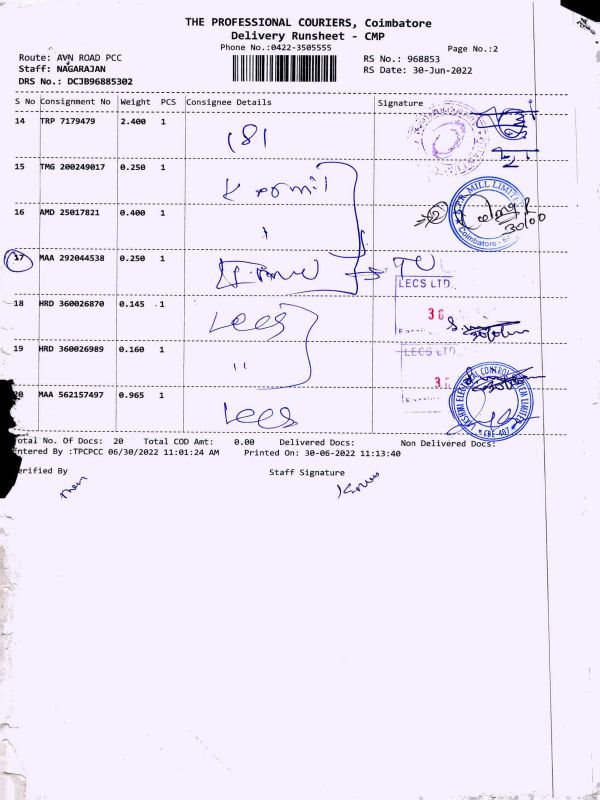 THE PROFESSIONAL COURIERS, Coimbatore
Delivery Runsheet - CMP
Phone No.:0422-3505555
Page No.:2
Route: AVN ROAD PCC
RS No.: 968853
Staff: NAGARAJAN
RS Date: 30-Jun-2022
DRS No.: DCJB96885302
S No Consignment No Weight PCS Consignee Details Signature
14 TRP 7179479 2.400 1
181
15 TMG 200249017 0.250 1
MILL LIMITED
16 AMD 25017821 0.400 1
Coimbatore
17 MAA 292044538 0.250 1
LECS LTD.
18 HRD 360026870 0.145 1 Lecs
30
19 HRD 360026989 0.160 1 "
LECS LTD.
20 MAA 562157497 0.965 1 Lecs
LAKSHMI ELECTRICAL CONTROL SYSTEM LIMITED
Total No. Of Docs: 20 Total COD Amt: 0.00 Delivered Docs: Non Delivered Docs:
Entered By :TPCPCC 06/30/2022 11:01:24 AM Printed On: 30-06-2022 11:13:40
Verified By Staff Signature